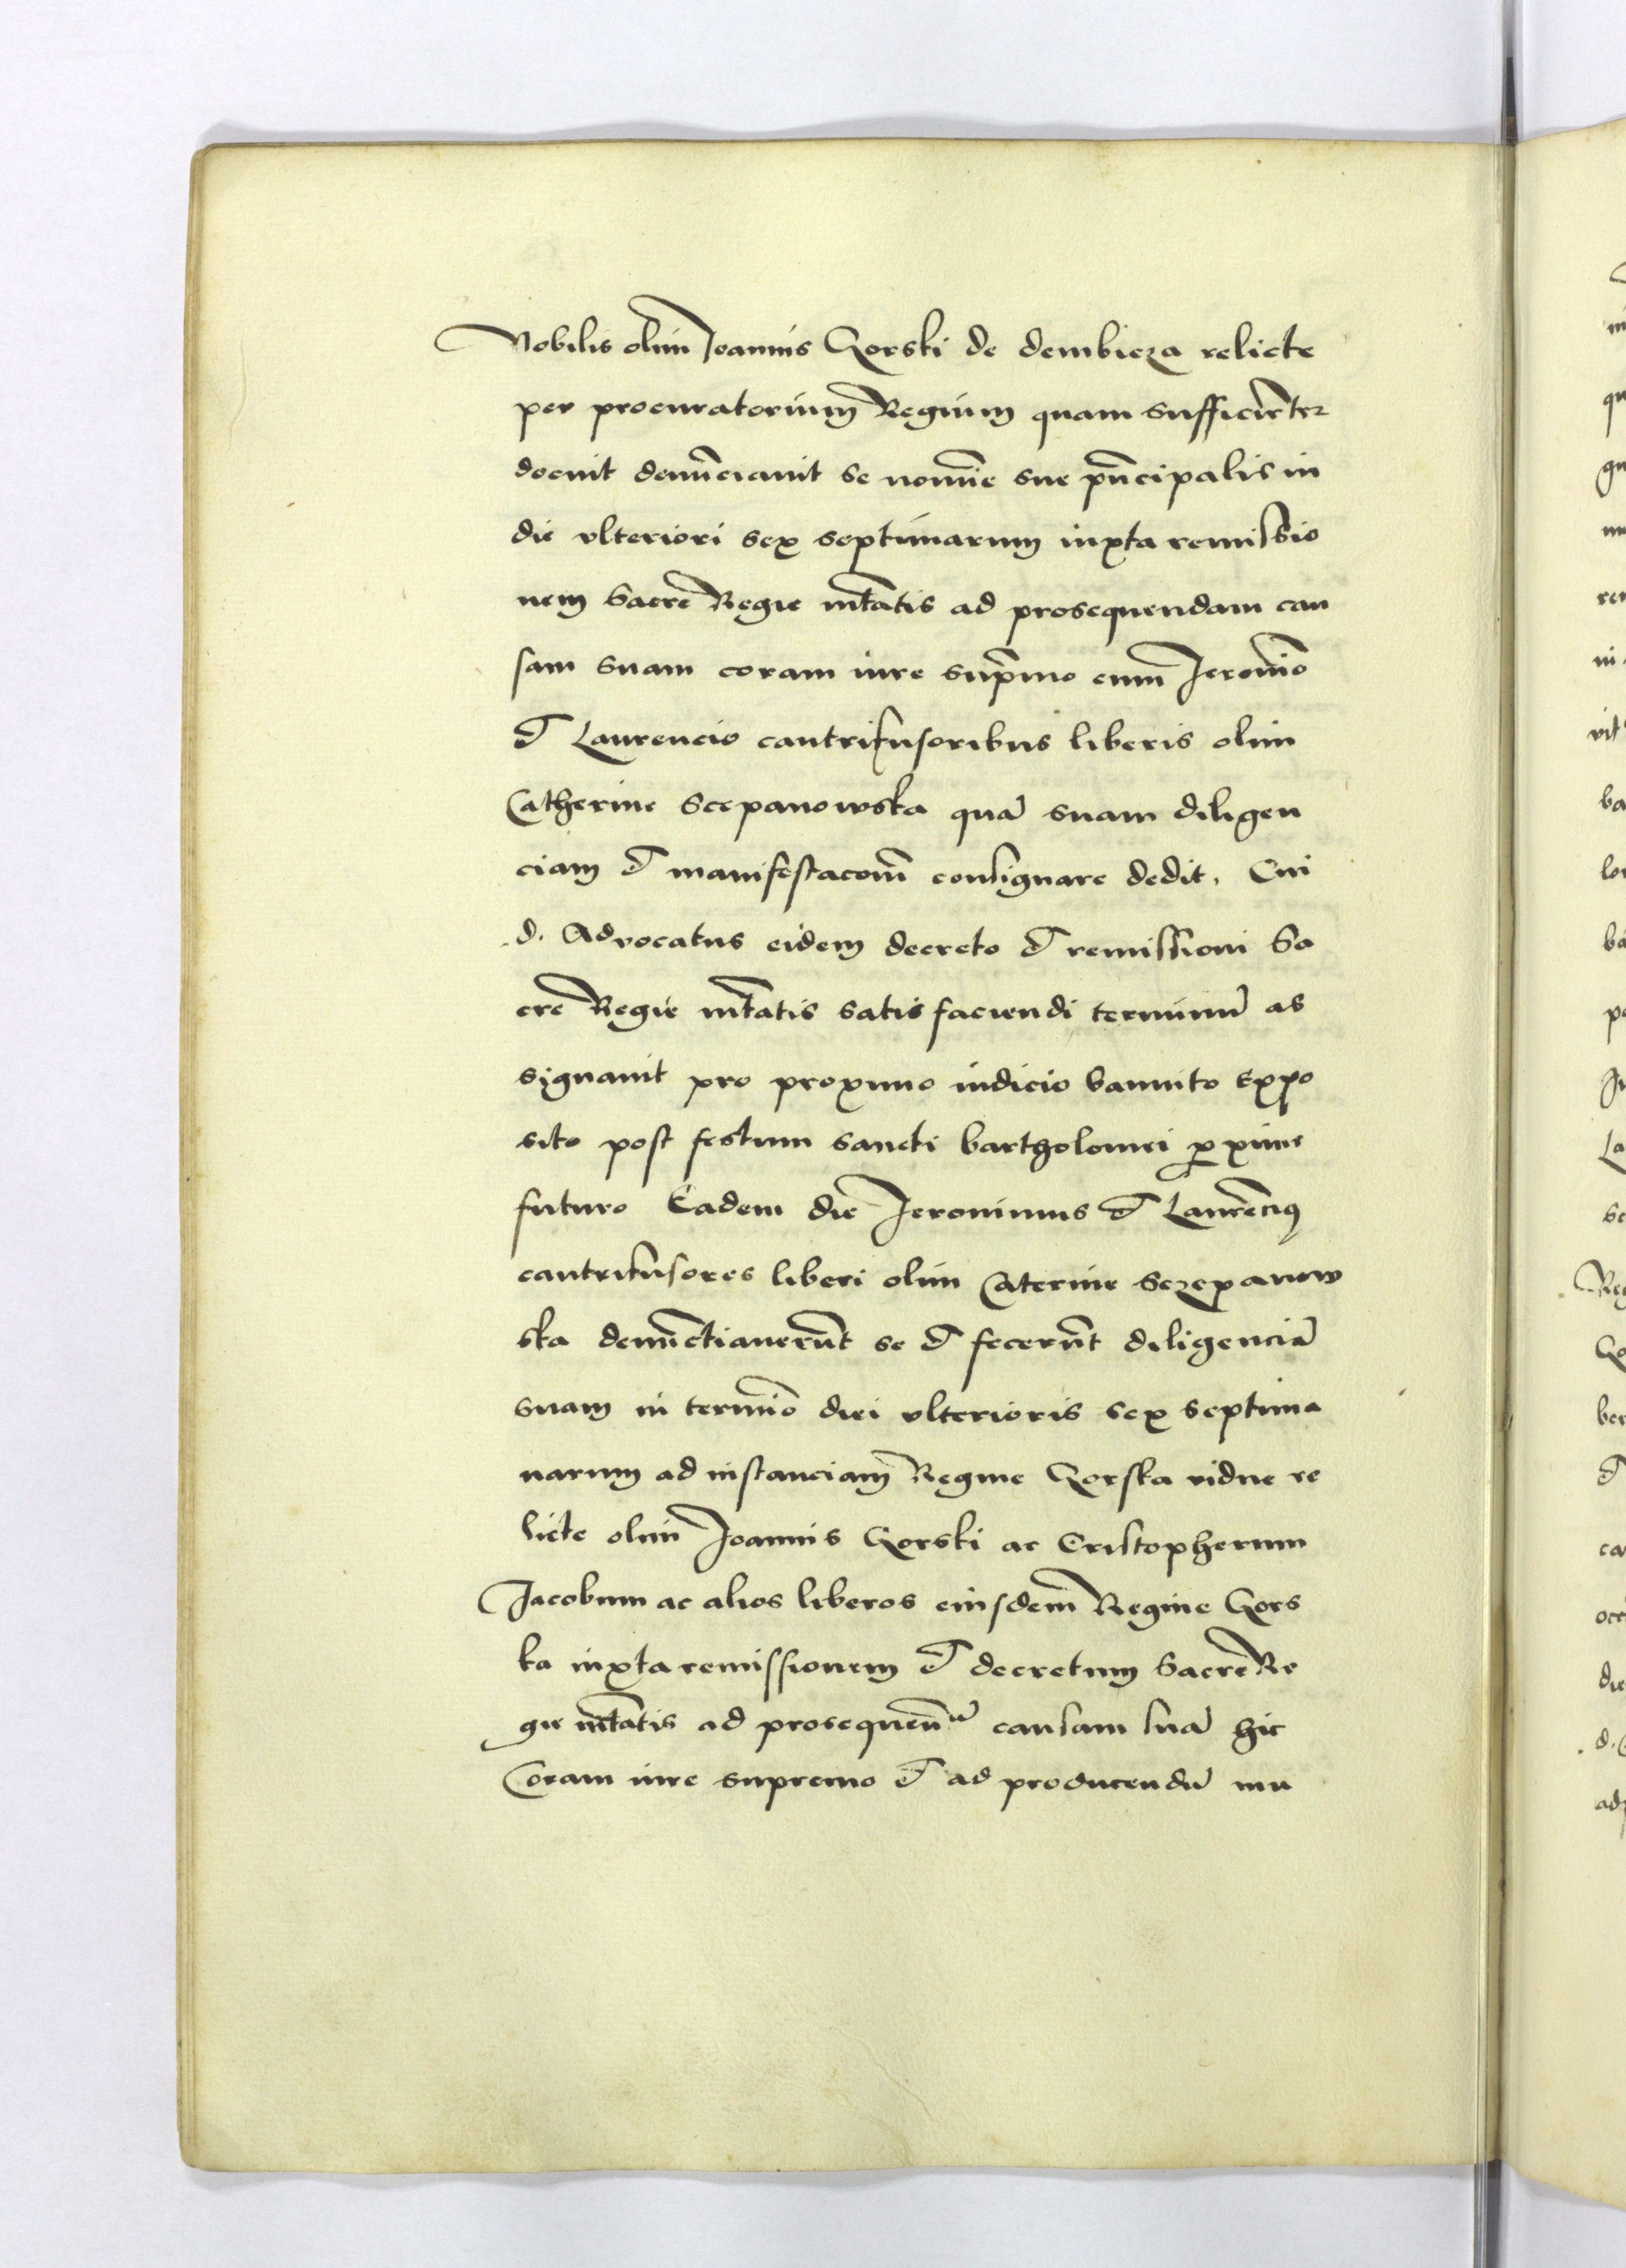 Nobilis olim Joannis Gorski de dembicza relicte
per procuratorium Regium quam sufficienter
docuit denunciauit se nomine sue principalis in
die vlteriori sex septimarum iuxta remissio
nem Sacre Regie mtatis ad prosequendam cau
sam suam coram iure supremo cum Jeronimo
et Laurencio cantrifusoribus liberis olim
Catherine Scepanowska quā suam diligen
ciam et manifestacom̄ consignare dedit. Cui
d. Advocatus eidem decreto et remissioni Sa
cre Regie mtatis satisfaciendi terminū as
signauit pro proximo iudicio bannito Expo
sito post festum sancti bartholomei proxime
futuro Eadem die Jeronimus et Laurēcius
cantrifusores liberi olim Caterine Sczepanow
ska denūctiauerūt se et fecerūt diligenciā
suam in termīo diei vlterioris sex septima
narum ad instanciam Regine Gorska vidue re
licte olim Joannis Gorski ac Cristopherum
Jacobum ac alios liberos eiusdem Regine Gors
ka iuxta remissionem et decretum Sacre Re
gie mtatis ad prosequen̄ causam suā hic
Coram iure supremo et ad producendū mu